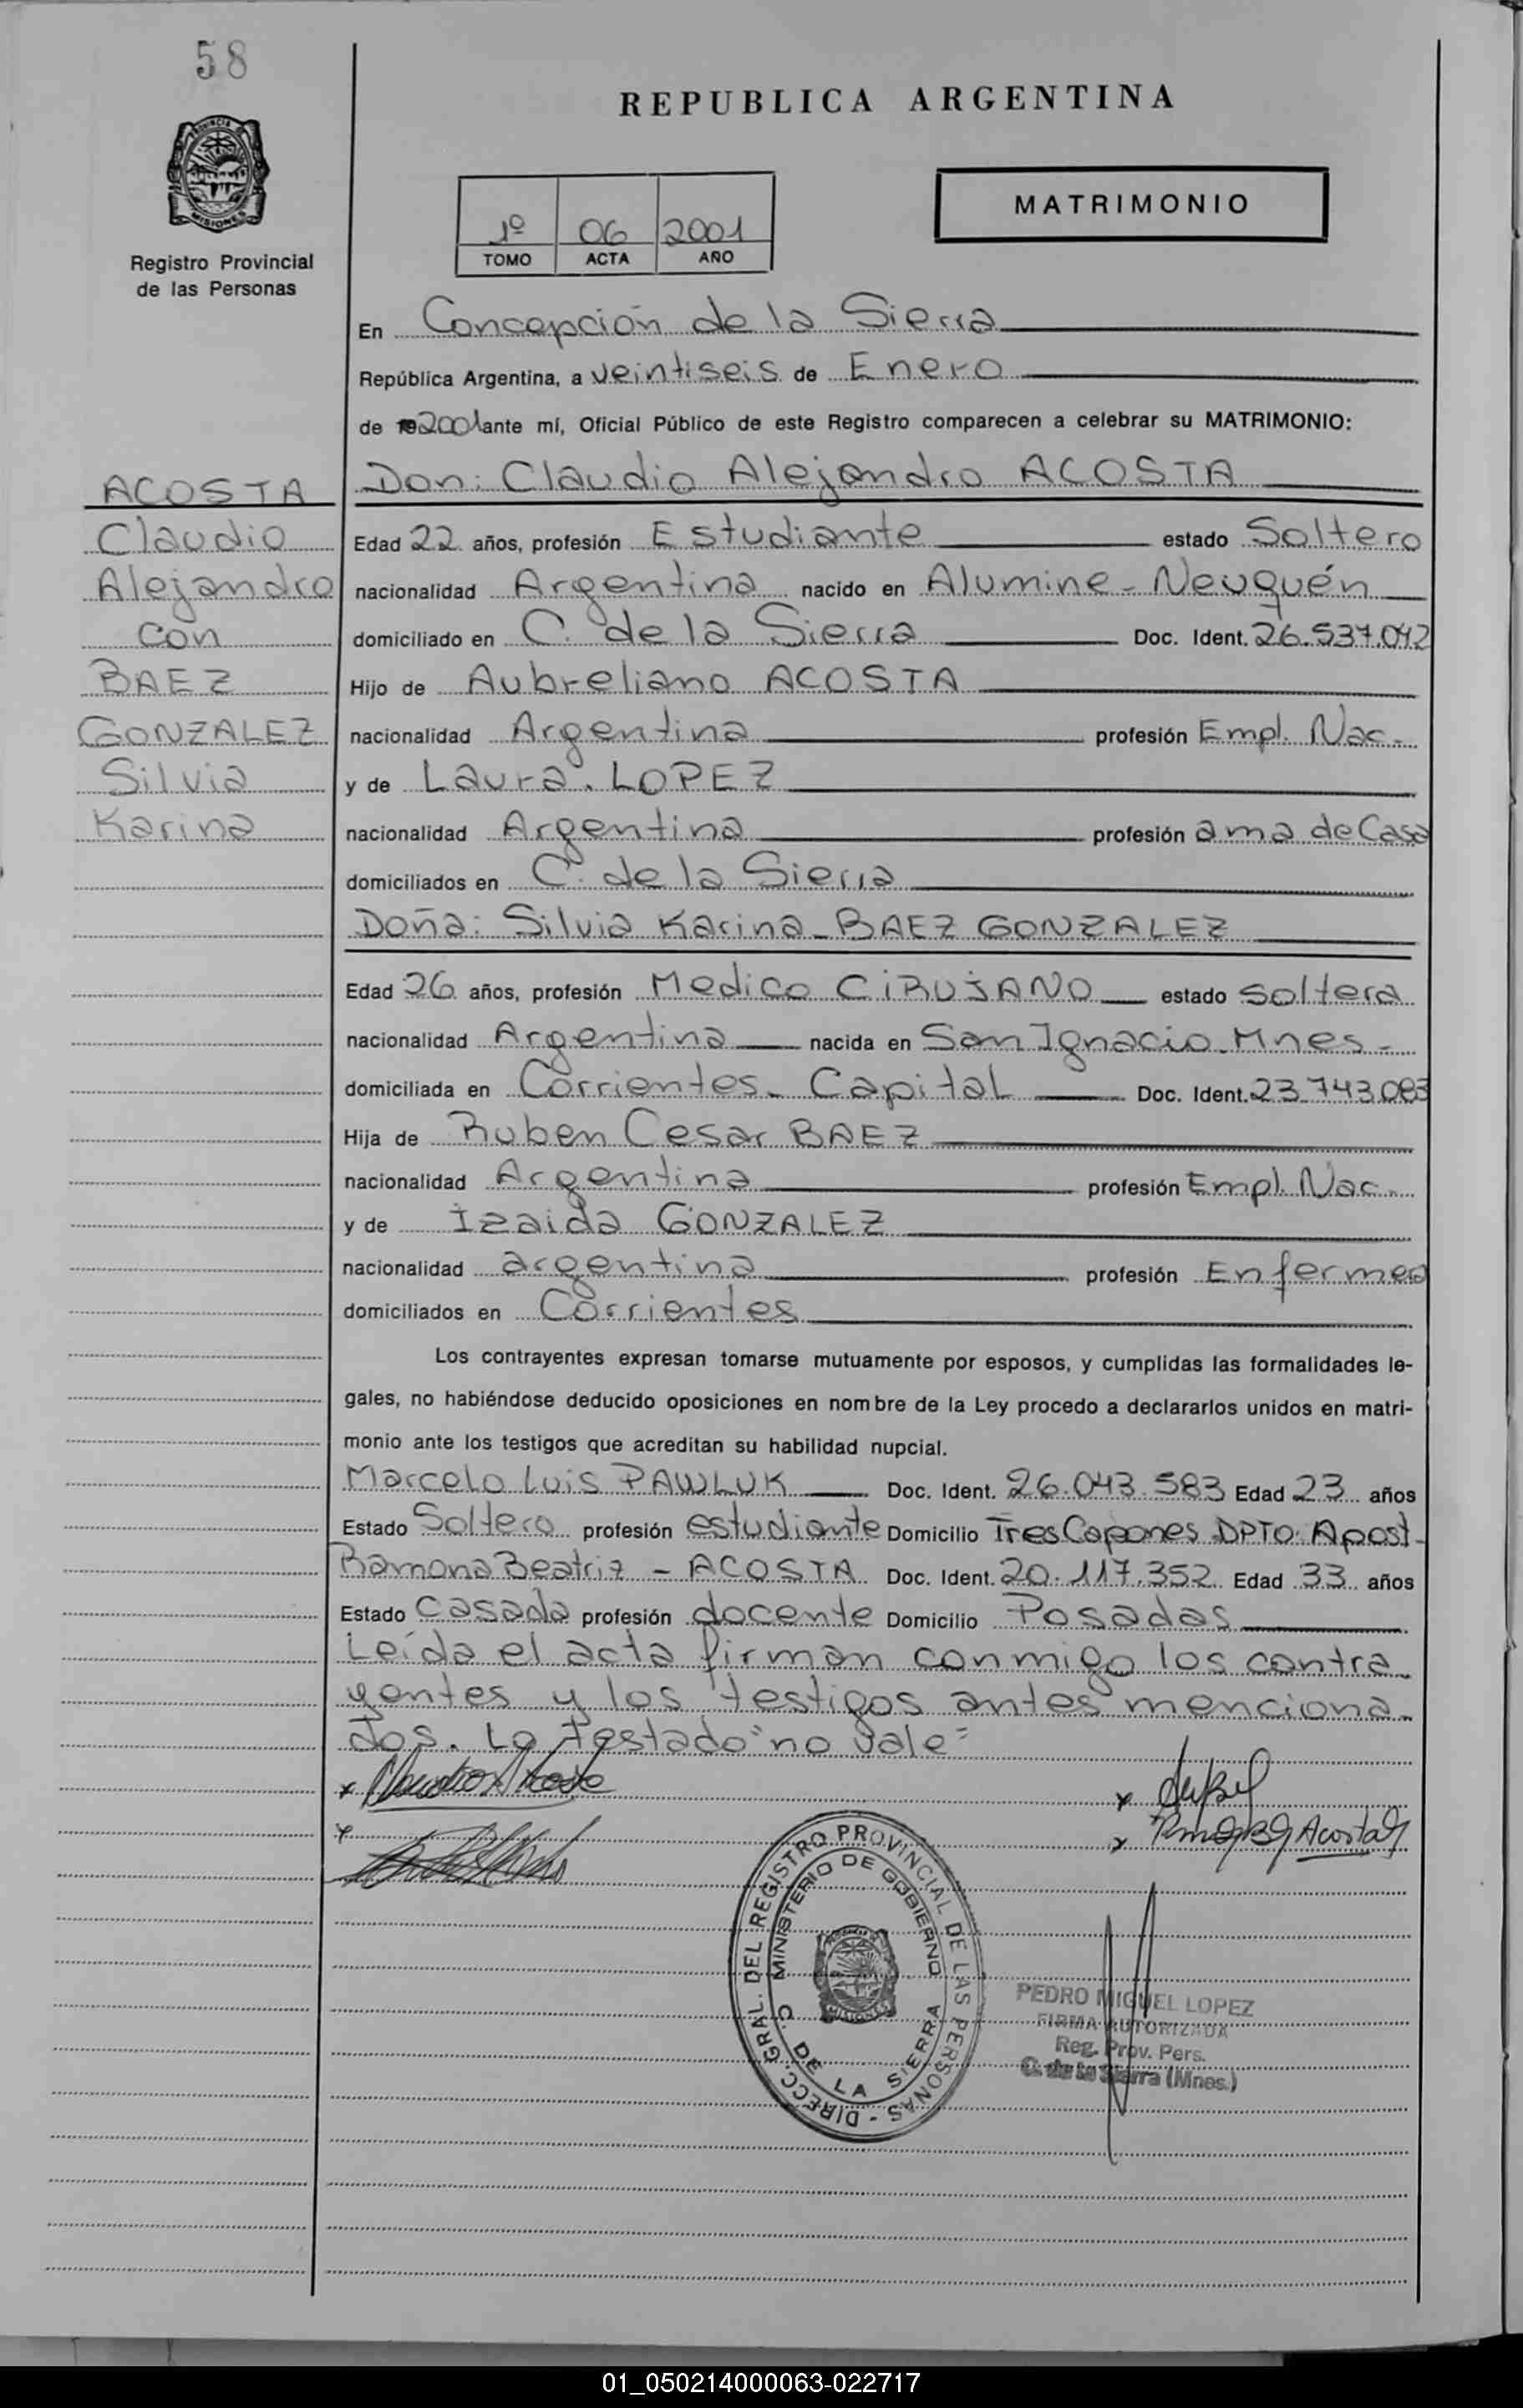 58
REPUBLICA ARGENTINA
MISIONES
Registro Provincial
de las Personas
1º 06 2001
TOMO ACTA AÑO
MATRIMONIO
En Concepción de la Sierra
República Argentina, a veintiseis de Enero
de 2001 ante mí, Oficial Público de este Registro comparecen a celebrar su MATRIMONIO:
ACOSTA
Claudio
Alejandro
con
BAEZ
GONZALEZ
Silvia
Karina
Don: Claudio Alejandro ACOSTA
Edad 22 años, profesión Estudiante estado Soltero
nacionalidad Argentina nacido en Alumine - Neuquén
domiciliado en C. de la Sierra Doc. Ident. 26.537.042
Hijo de Aubreliano ACOSTA
nacionalidad Argentina profesión Empl. Nac.
y de Laura. LOPEZ
nacionalidad Argentina profesión ama de Casa
domiciliados en C. de la Sierra
Doña: Silvia Karina - BAEZ GONZALEZ
Edad 26 años, profesión Medico CIRUJANO estado soltera
nacionalidad Argentina nacida en San Ignacio - Mnes -
domiciliada en Corrientes - Capital Doc. Ident. 23.743.083
Hija de Ruben Cesar BAEZ
nacionalidad Argentina profesión Empl. Nac.
y de Izaida GONZALEZ
nacionalidad argentina profesión Enfermea
domiciliados en Corrientes
Los contrayentes expresan tomarse mutuamente por esposos, y cumplidas las formalidades le-
gales, no habiéndose deducido oposiciones en nombre de la Ley procedo a declararlos unidos en matri-
monio ante los testigos que acreditan su habilidad nupcial.
Marcelo Luis PAWLUK Doc. Ident. 26.043.583 Edad 23 años
Estado Soltero profesión estudiante Domicilio Tres Capones DPTO. Apost-
Ramona Beatriz - ACOSTA Doc. Ident. 20.117.352 Edad 33 años
Estado Casada profesión docente Domicilio Posadas
Leída el acta firman conmigo los contra
yentes y los testigos antes menciona-
dos. Lo testado "no vale"
DIRECC. GRAL. DEL REGISTRO PROVINCIAL DE LAS PERSONAS -
MINISTERIO DE GOBIERNO
C. DE LA SIERRA
MISIONES
PEDRO MIGUEL LOPEZ
FIRMA AUTORIZADA
Reg. Prov. Pers.
C. de la Sierra (Mnes.)
01_050214000063-022717